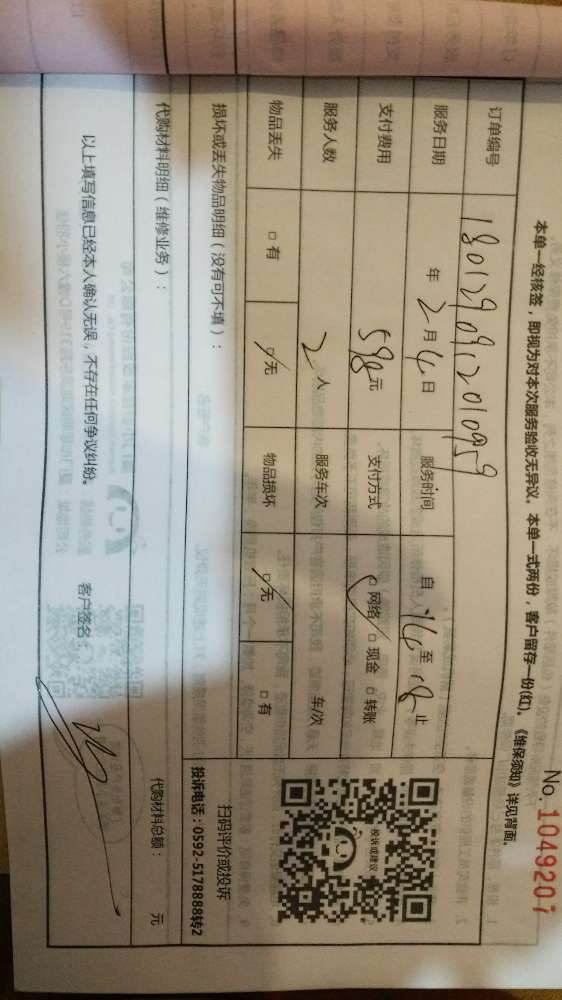 No. 1049207
本单一经核签，即视为对本次服务验收无异议。本单一式两份，客户留存一份(红)。《维保须知》详见背面。
订单编号 1801290912010959
服务日期 年 2月4日 服务时间 自 14 至 18 止
支付费用 598元 支付方式 ☑ 网络 □ 现金 □ 转账
服务人数 2人 服务车次 车/次
物品丢失 □ 有 ☑ 无 物品损坏 ☑ 无 □ 有
投诉或建议
扫码评价或投诉
投诉电话：0592-5178888转2
损坏或丢失物品明细（没有可不填）：
代购材料明细（维修业务）：
代购材料总额： 元
以上填写信息已经本人确认无误，不存在任何争议纠纷。 客户签名：